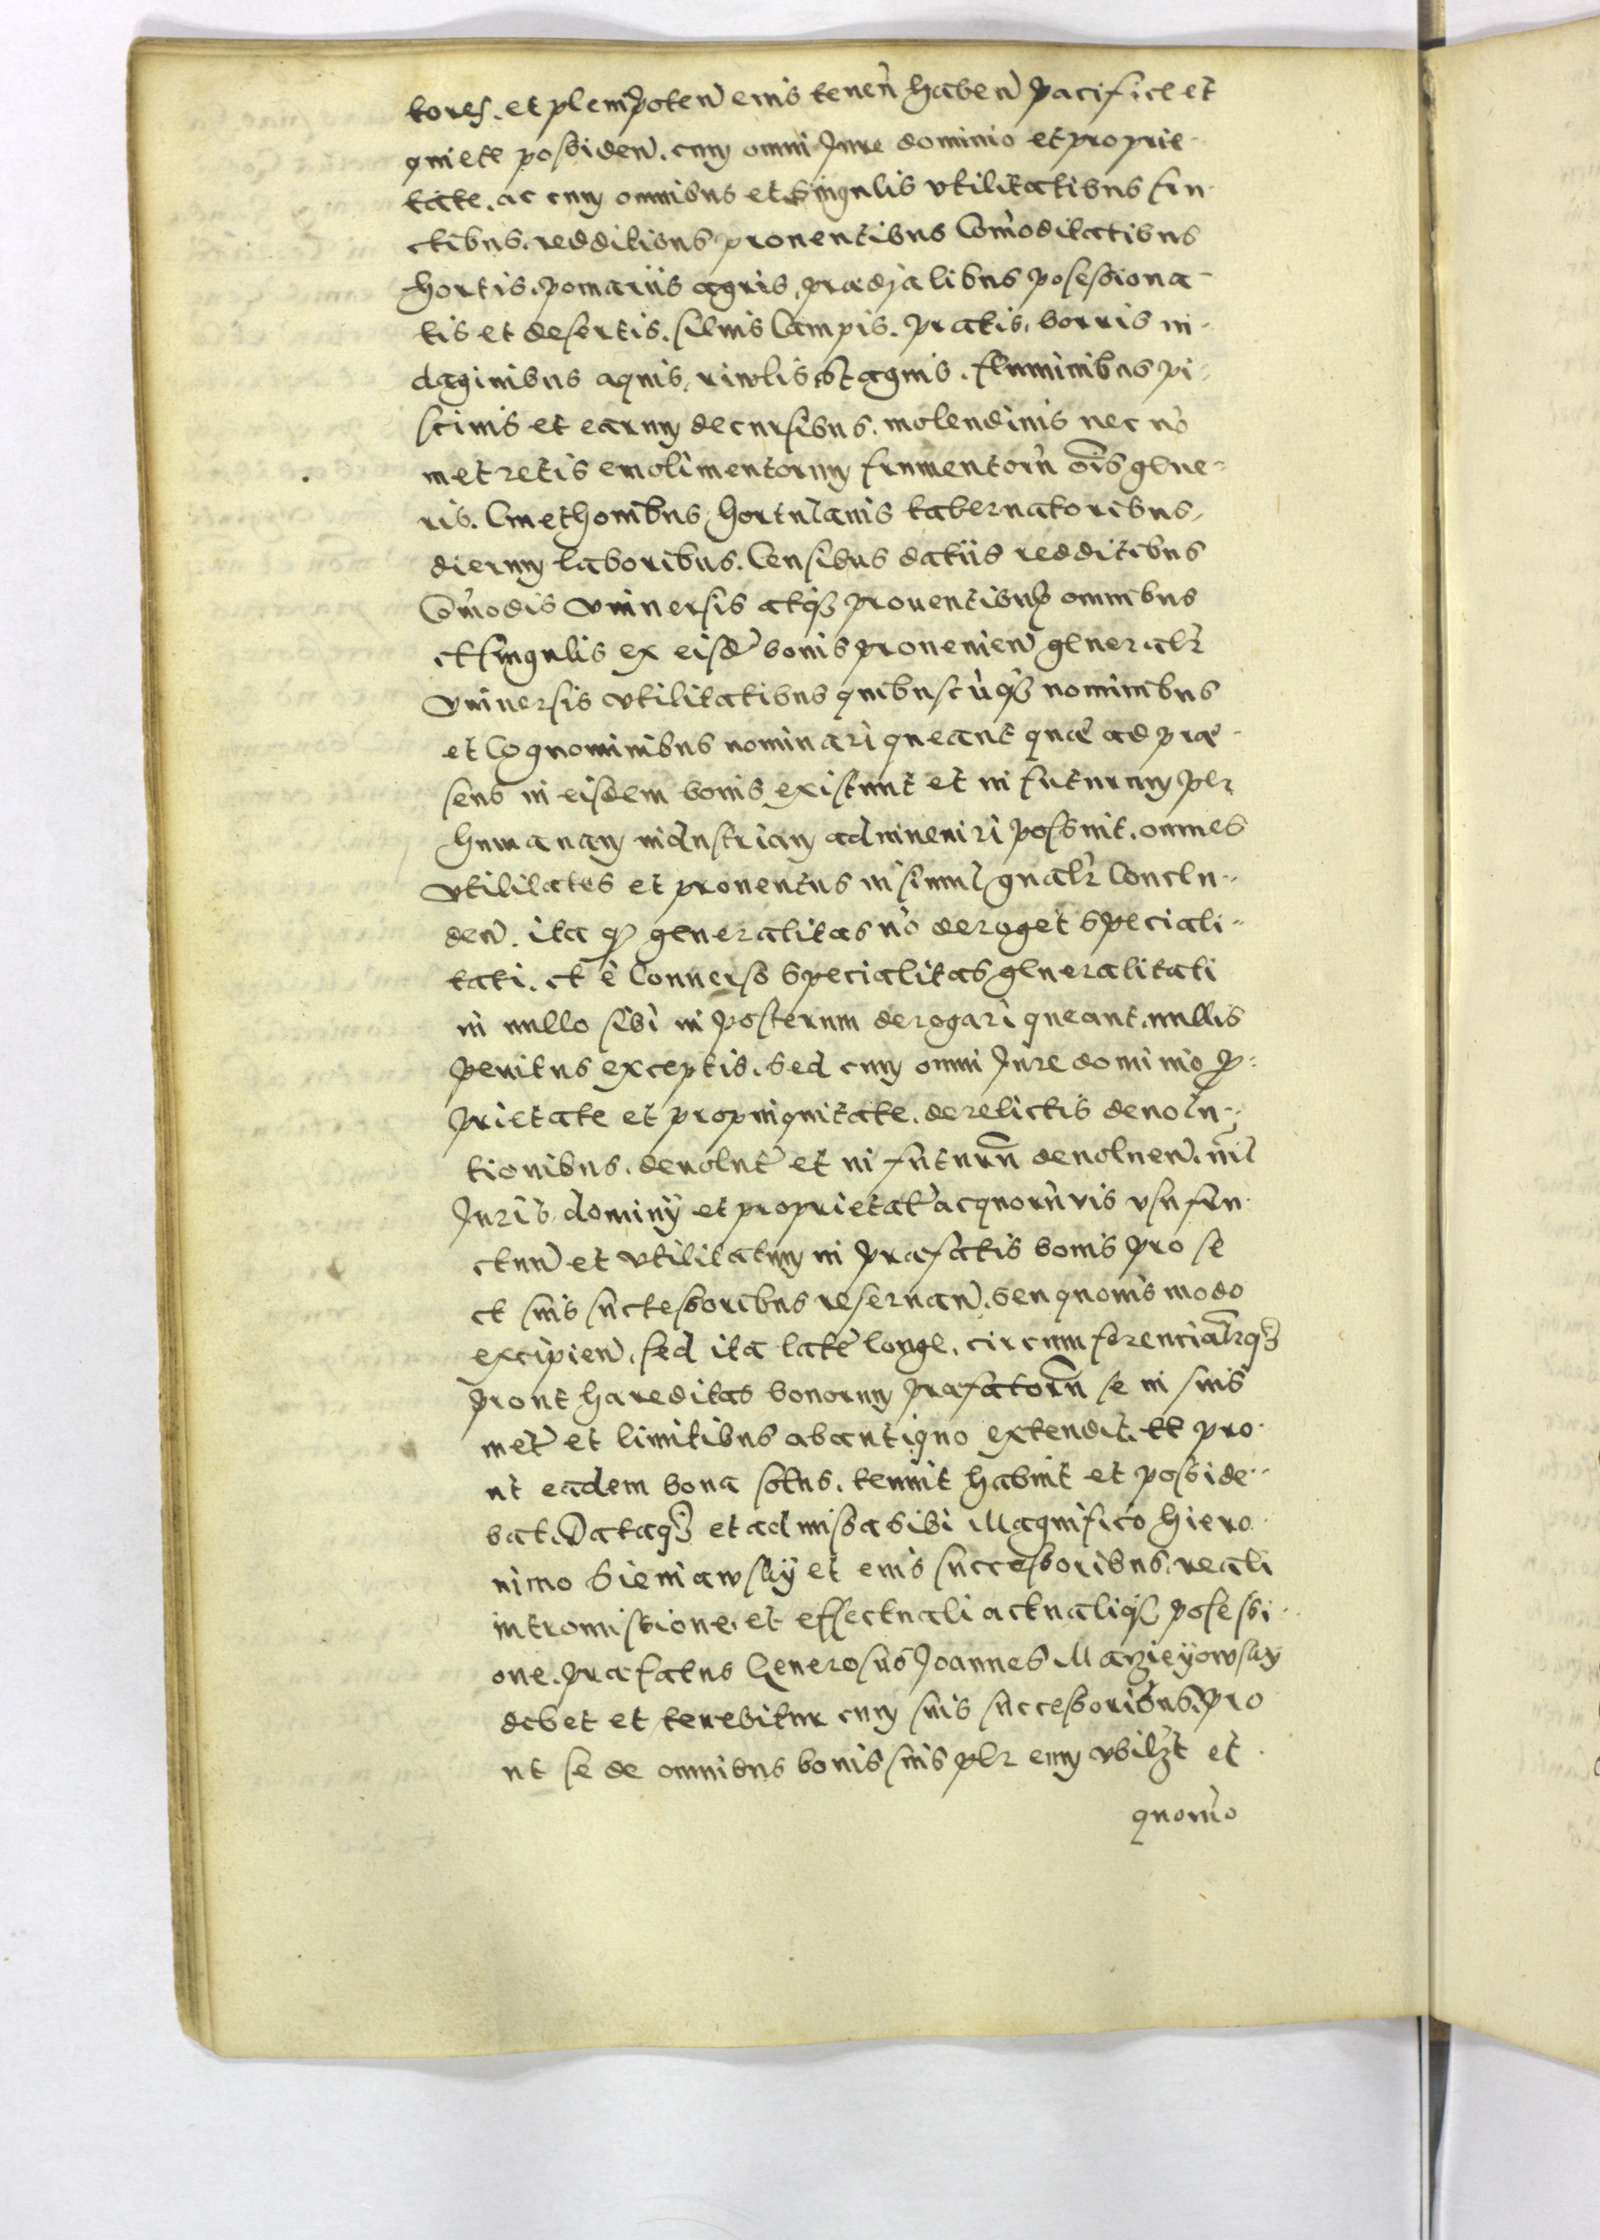 tores. et plenipoten̄ eius tenen̄ haben̄ pacifice et
quiete possiden̄. cum omni Jure dominio et proprie-
tate. ac cum omnibus et singulis vtilitatibus fru-
ctibus. redditibus prouentibus Com̄oditatibus
hortis. pomariis agris, prædjalibus posessiona-
tis et desertis. siluis Campis. pratis. borris in-
daginibus aquis, riwlis stagnis. fluminibus pi-
scinis et earum decursibus. molendinis nec nō
metretis emolimentorum frumentorū oīs gene-
ris. Cmethonibus, hortulanis tabernatoribus,
dierum laboribus. Censibus datiis redditibus
Com̄odis vniuersis atq3 prouentibus omnibus
et singulis ex eisdē bonis prouenien̄ generalr̄
vniuersis vtilitatibus quibuscūq3 nominibus
et Cognominibus nominari queant quæ ad præ-
sens in eisdem bonis existunt et in futurum per
humanam industriam adinueniri possint. omnes
vtilitates et prouentus insimul gnalr̄ Conclu-
den̄. ita q generalitas nō deroget speciali-
tati. et è Conuerso specialitas generalitati
in nullo sibi in posterum derogari queant. nullis
penitus exceptis. sed cum omni Jure dominio p-
prietate et propinquitate. derelictis deuolu-
tionibus. deuolut̄ et in futurū deuoluen̄. nil
Juris dominÿ et proprietat̄ ac quoruvis vsufru-
ctuū et vtilitatum in præfatis bonis pro se
et suis successoribus reseruan̄. seu quouis modo
excipien̄. sed ita latè longe. circumferencialrq3
prout hæreditas bonorum præfatorū se in suis
met̄ et limitibus abantiquo extendit. et pro-
ut eadem bona solus. tenuit habuit et posside-
bat. Dataq3 et admissa sibi Magnifico Hiero-
nimo Sieniawskÿ et eius successoribus. reali
intromissione. et effectuali actualiq3 posessi-
one. præfatus Generosus Joannes Maczieÿowskÿ
debet et tenebitur cum suis successoribus. pro
ut se de omnibus bonis suis per eum vbilz̄t et
quomō